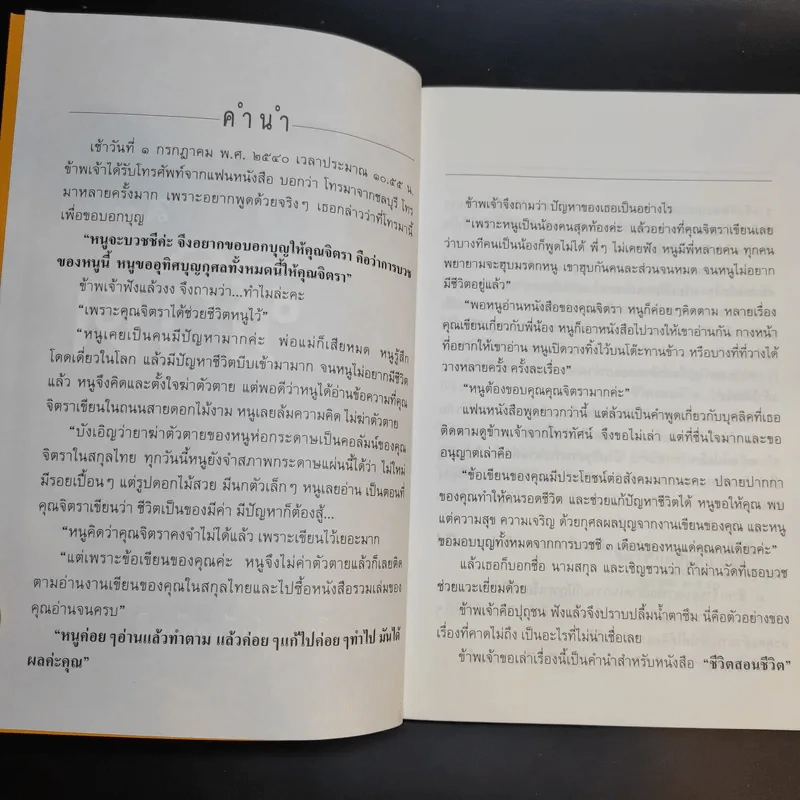 คำนำ
เช้าวันที่ ๑ กรกฎาคม พ.ศ. ๒๕๔๐ เวลาประมาณ ๑๐.๕๕ น.
ข้าพเจ้าได้รับโทรศัพท์จากแฟนหนังสือ บอกว่า โทรมาจากชลบุรี โทร
มาหลายครั้งมาก เพราะอยากพูดด้วยจริงๆ เธอกล่าวว่าที่โทรมานี้
เพื่อขอบอกบุญ
“หนูจะบวชชีค่ะ จึงอยากขอบอกบุญให้คุณจิตรา คือว่าการบวช
ของหนูนี้ หนูขออุทิศบุญกุศลทั้งหมดนี้ให้คุณจิตรา”
ข้าพเจ้าฟังแล้วงง จึงถามว่า...ทำไมล่ะคะ
“เพราะคุณจิตราได้ช่วยชีวิตหนูไว้”
“หนูเคยเป็นคนมีปัญหามากค่ะ พ่อแม่ก็เสียหมด หนูรู้สึก
โดดเดี่ยวในโลก แล้วมีปัญหาชีวิตบีบเข้ามามาก จนหนูไม่อยากมีชีวิต
แล้ว หนูจึงคิดและตั้งใจฆ่าตัวตาย แต่พอดีว่าหนูได้อ่านข้อความที่คุณ
จิตราเขียนในถนนสายดอกไม้งาม หนูเลยล้มความคิด ไม่ฆ่าตัวตาย
“บังเอิญว่ายาฆ่าตัวตายของหนูห่อกระดาษเป็นคอลัมน์ของคุณ
จิตราในสกุลไทย ทุกวันนี้หนูยังจำสภาพกระดาษแผ่นนี้ได้ว่า ไม่ใหม่
มีรอยเปื้อนๆ แต่รูปดอกไม้สวย มีนกตัวเล็กๆ หนูเลยอ่าน เป็นตอนที่
คุณจิตราเขียนว่า ชีวิตเป็นของมีค่า มีปัญหาก็ต้องสู้...
“หนูคิดว่าคุณจิตราคงจำไม่ได้แล้ว เพราะเขียนไว้เยอะมาก
“แต่เพราะข้อเขียนของคุณค่ะ หนูจึงไม่ฆ่าตัวตายแล้วก็เลยติด
ตามอ่านงานเขียนของคุณในสกุลไทยและไปซื้อหนังสือรวมเล่มของ
คุณอ่านจนครบ”
“หนูค่อยๆอ่านแล้วทำตาม แล้วค่อยๆแก้ไปค่อยๆทำไป มันได้
ผลค่ะคุณ”
ข้าพเจ้าจึงถามว่า ปัญหาของเธอเป็นอย่างไร
“เพราะหนูเป็นน้องคนสุดท้องค่ะ แล้วอย่างที่คุณจิตราเขียนเลย
ว่าบางทีคนเป็นน้องก็พูดไม่ได้ พี่ๆ ไม่เคยฟัง หนูมีพี่หลายคน ทุกคน
พยายามจะฮุบมรดกหนู เขาฮุบกันคนละส่วนจนหมด จนหนูไม่อยาก
มีชีวิตอยู่แล้ว”
“พอหนูอ่านหนังสือของคุณจิตรา หนูก็ค่อยๆคิดตาม หลายเรื่อง
คุณเขียนเกี่ยวกับพี่น้อง หนูก็เอาหนังสือไปวางให้เขาอ่านกัน กางหน้า
ที่อยากให้เขาอ่าน หนูเปิดวางทิ้งไว้บนโต๊ะทานข้าว หรือบางที่ที่วางได้
วางหลายครั้ง ครั้งละเรื่อง”
“หนูต้องขอบคุณคุณจิตรามากค่ะ”
แฟนหนังสือพูดยาวกว่านี้ แต่ล้วนเป็นคำพูดเกี่ยวกับบุคลิคที่เธอ
ติดตามดูข้าพเจ้าจากโทรทัศน์ จึงขอไม่เล่า แต่ที่ชื่นใจมากและขอ
อนุญาตเล่าคือ
“ข้อเขียนของคุณมีประโยชน์ต่อสังคมมากนะคะ ปลายปากกา
ของคุณทำให้คนรอดชีวิต และช่วยแก้ปัญหาชีวิตได้ หนูขอให้คุณ พบ
แต่ความสุข ความเจริญ ด้วยกุศลผลบุญจากงานเขียนของคุณ และหนู
ขอมอบบุญทั้งหมดจากการบวชชี ๓ เดือนของหนูแด่คุณคนเดียวค่ะ”
แล้วเธอก็บอกชื่อ นามสกุล และเชิญชวนว่า ถ้าผ่านวัดที่เธอบวช
ช่วยแวะเยี่ยมด้วย
ข้าพเจ้าคือปุถุชน ฟังแล้วจึงปราบปลื้มน้ำตาซึม นี่คือตัวอย่างของ
เรื่องที่คาดไม่ถึง เป็นอะไรที่ไม่น่าเชื่อเลย
ข้าพเจ้าขอเล่าเรื่องนี้เป็นคำนำสำหรับหนังสือ “ชีวิตสอนชีวิต”